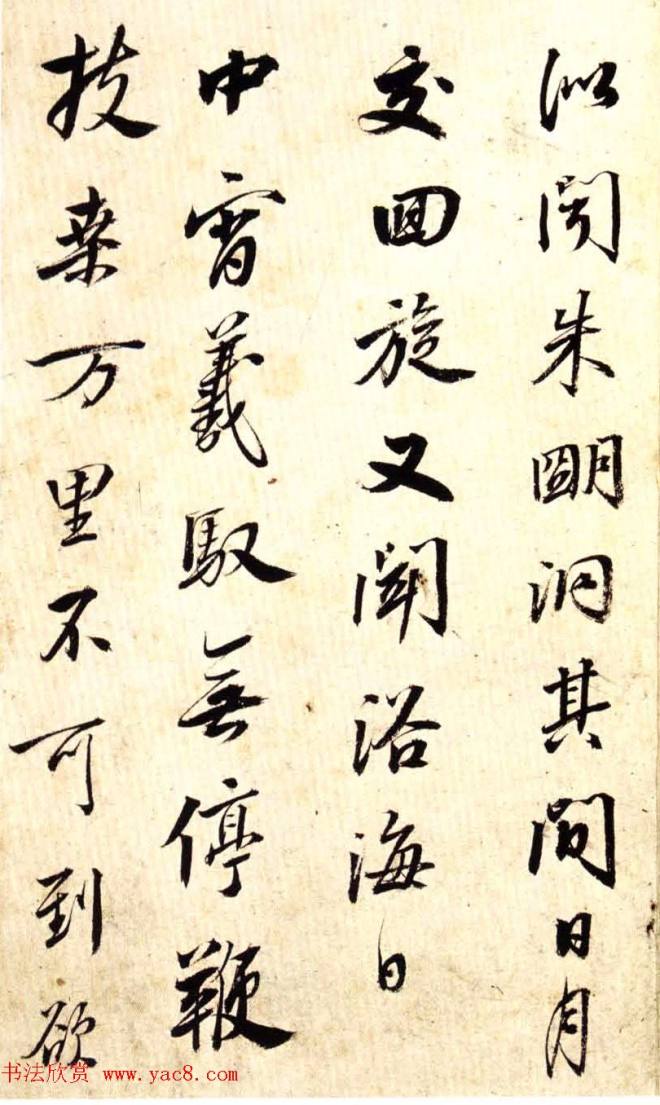 似聞朱朙洞其間日月
交囬旋又聞浴海日
中宵羲馭無停鞭
扶桒万里不可到欲
书法欣赏 www.yac8.com